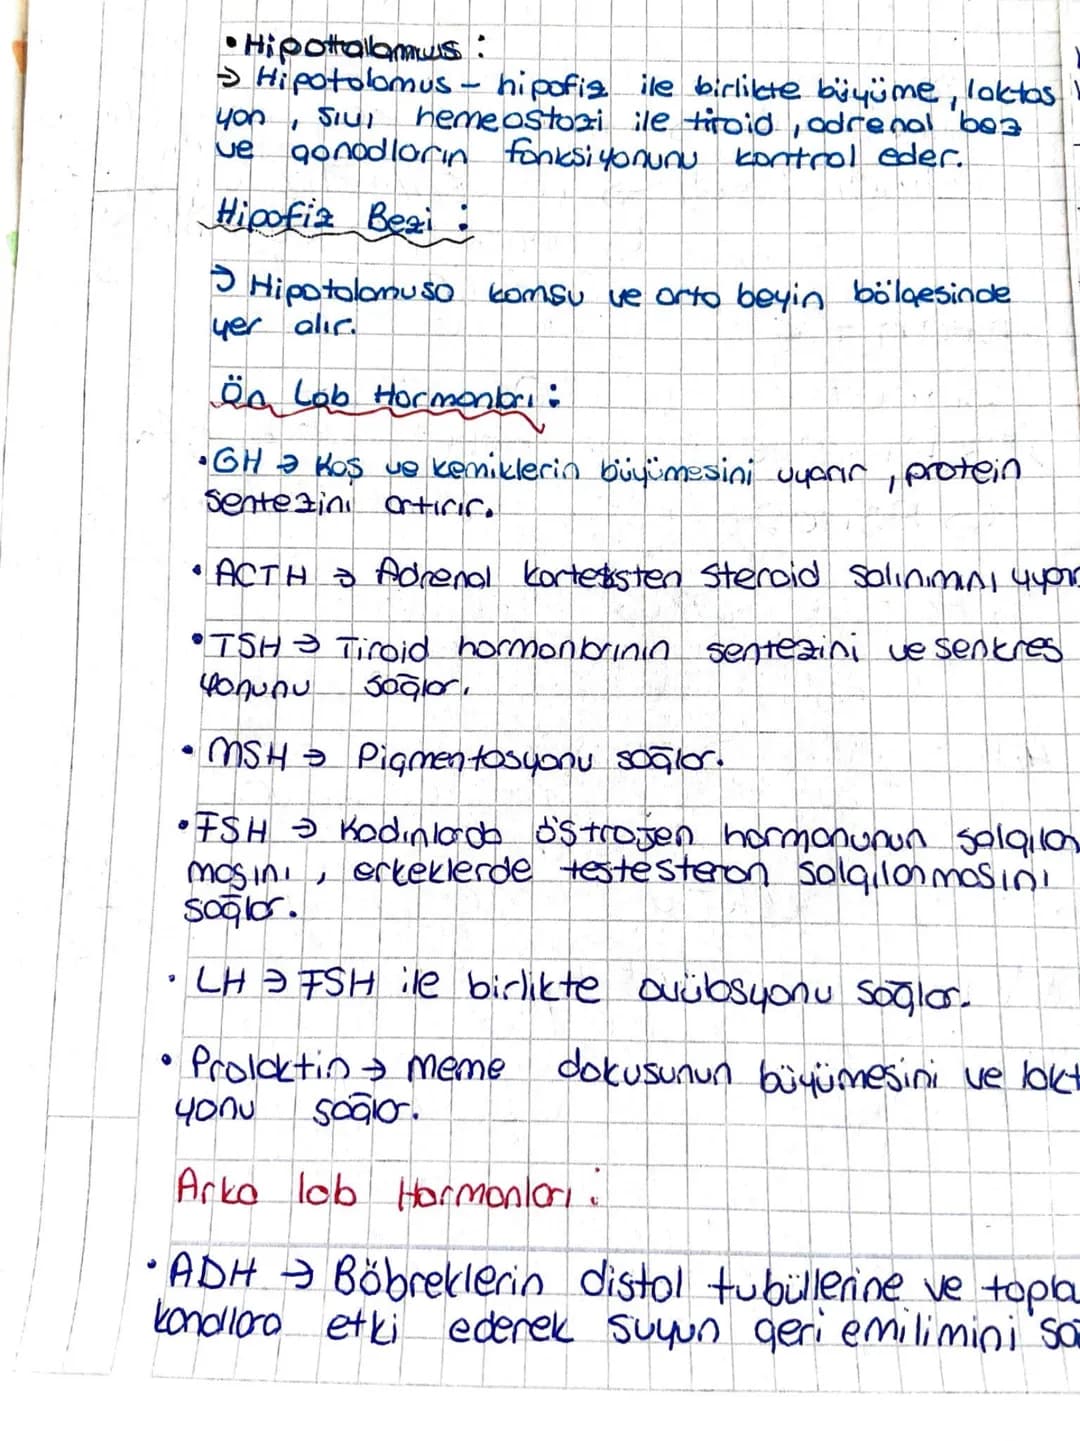 • Hipottalamus :
→ Hipotolamus - hipofiz ile birlikte büyüme, laktas
yon, sıvı hemeostazi ile tiroid, adrenal bez
ve gonadların fonksiyonunu kontrol eder.
Hipofiz Bezi :
→ Hipotolamusa komşu ve orta beyin bölgesinde
yer alır.
Ön Lob Hormonları :
• GH → Kas ve kemiklerin büyümesini uyarır, protein
sentezini artırır.
• ACTH → Adrenal korteksten steroid salınımını uyarır
• TSH → Tiroid hormonlarının sentezini ve sekres
yonunu sağlar.
• MSH → Pigmentasyonu sağlar.
• FSH → Kadınlarda östrojen hormonunun salgılan
masını, erkeklerde testesteron salgılanmasını
sağlar.
• LH → FSH ile birlikte ovülasyonu sağlar.
• Prolaktin → meme dokusunun büyümesini ve lakt
yonu sağlar.
Arka lob Hormonları :
• ADH → Böbreklerin distal tubüllerine ve topla
kanallara etki ederek suyun geri emilimini sa